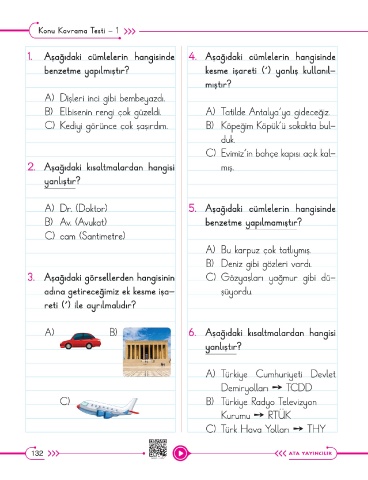 Konu Kavrama Testi – 1
1. Aşağıdaki cümlelerin hangisinde
benzetme yapılmıştır?
A) Dişleri inci gibi bembeyazdı.
B) Elbisenin rengi çok güzeldi.
C) Kediyi görünce çok şaşırdım.
2. Aşağıdaki kısaltmalardan hangisi
yanlıştır?
A) Dr. (Doktor)
B) Av. (Avukat)
C) cam (Santimetre)
3. Aşağıdaki görsellerden hangisinin
adına getireceğimiz ek kesme işa-
reti (’) ile ayrılmalıdır?
A)
B)
C)
4. Aşağıdaki cümlelerin hangisinde
kesme işareti (’) yanlış kullanıl-
mıştır?
A) Tatilde Antalya’ya gideceğiz.
B) Köpeğim Köpük’ü sokakta bul-
duk.
C) Evimiz’in bahçe kapısı açık kal-
mış.
5. Aşağıdaki cümlelerin hangisinde
benzetme yapılmamıştır?
A) Bu karpuz çok tatlıymış.
B) Deniz gibi gözleri vardı.
C) Gözyaşları yağmur gibi dü-
şüyordu.
6. Aşağıdaki kısaltmalardan hangisi
yanlıştır?
A) Türkiye Cumhuriyeti Devlet
Demiryolları → TCDD
B) Türkiye Radyo Televizyon
Kurumu → RTÜK
C) Türk Hava Yolları → THY
132
ATA YAYINCILIK